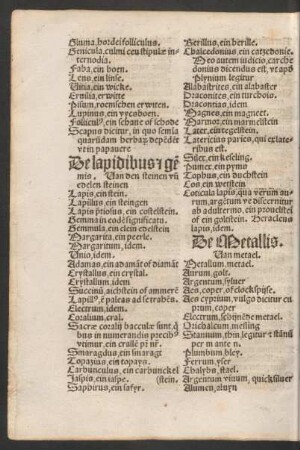 Gluma, hordei folliculus.
Genicula, culmi ceu stipulæ in-
ternodia.
Faba, ein boen.
Lens, ein linse.
Vitia, ein wicke.
Ervilia, erwitte
Pisum, roemschen erwiten.
Lupinus, ein vycboen.
Follicul9, ein schaite of schode
Scapus dicitur, in quo semīa
quarūdam herbaꝝ, depēdēt
vt in papauere
De lapidibus ⁊ gē
mis. Van den steinen vñ
edelen steinen
Lapis, ein stein.
Lapillus, ein steingen
Lapis p̄tiosus, ein costelstein.
Gemma in eodē significatu.
Gemmula, ein clein edelstein
Margarita, ein peerle.
Margaritum, idem.
Unio, idem.
Adamas, ein adamāt of diamāt
Crystallus, ein crystal.
Crystallum, idem
Succinū, aichstein of ammerē
Lapill9, ē paleas ad se trahēs.
Electrum, idem.
Coralium, cral.
Sacræ coralij bacculæ sunt, q̄
bus in numerandis precib9
vtimur, ein crallē pr̄ nr̄.
Smaragdus, ein smaragt
Topazius, ein topays.
Carbunculus, ein carbunckel
Jaspis, ein iaspe. (stein.
Saphirus, ein safyr.
Berillus, ein berille.
Chalcedonius, ein catzedonie.
Meo autem iudicio, carche
donius dicendus est, vt apō
Plynium legitur
Alabastrites, ein alabaster
Draconites, ein turchois.
Dracontias, idem.
Magnes, ein magneet.
Marmor, ein marmelstein
Later, ein tegelstein.
Latericius paries, qui ex late-
ribus est.
Silex, ein keseling.
Pumex, ein pymis
Tophus, ein duchstein
Cos, ein wetstein
Coticula lapis, q̄ a verum au-
rum, argētum ve discernitur
ab adulterino, ein proeuistel
ei ein golstein. Heracleus
lapis, idem.
De Metallis.
Van metael.
Metallum, metael.
Aurum, golt.
Argentum, syluer
Aes, coper, of clockspijse.
Aes cyprium, vulgo dicitur cu
prum, coper
Electrum, schijnēde metael.
Orichalcum, messing
Stannum, thin legitur & stānū
per n ante n.
Plumbum, bley.
Ferrum, yser
Chalybs, stael.
Argentum viuum, quicksiluer
Alumen, aluyn